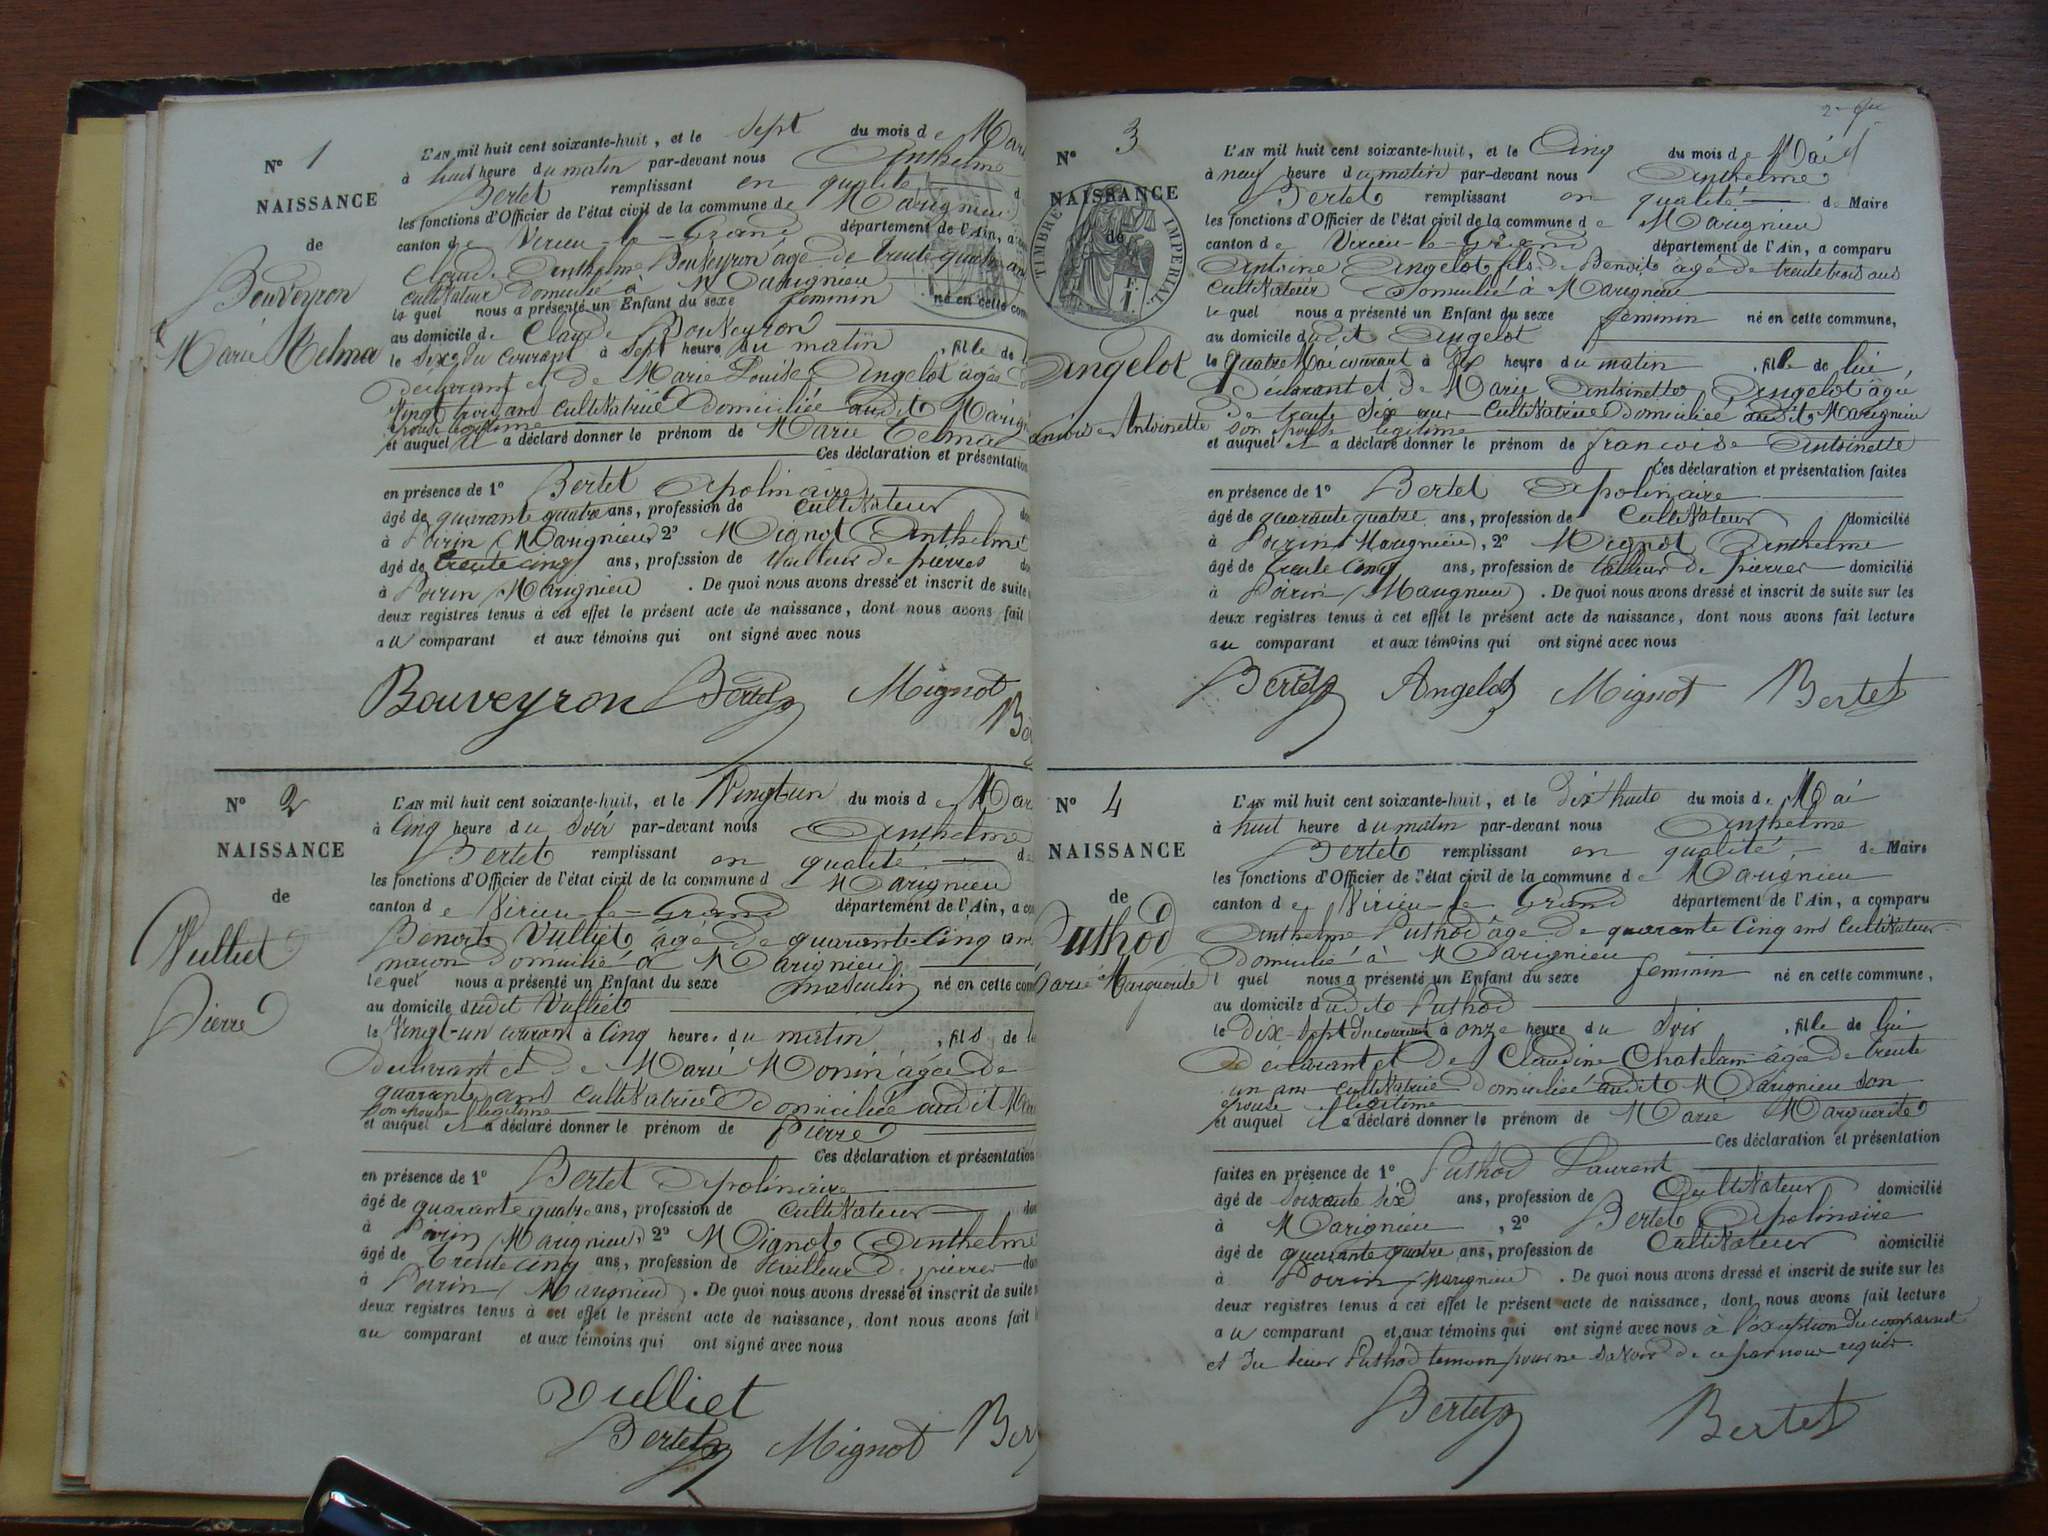 N° 1
NAISSANCE
de
Bouveyron
Marie Melma
L'AN mil huit cent soixante-huit, et le sept du mois de Mars
à huit heure du matin par-devant nous Anthelme
Bertet remplissant en qualité
les fonctions d'Officier de l'état civil de la commune de Marignieu
canton de Virieu-le-Grand département de l'Ain, a
Claude Anthelme Bouveyron âgé de trente quatre ans
cultivateur domicilié à Marignieu
le quel nous a présenté un Enfant du sexe feminin né en cette com
au domicile de Claude Bouveyron
le Six du courant à sept heure du matin , fille de
declarant et de Marie Louise Angelot âgée
Vingt trois ans cultivatrice domiciliée audit Marig
épouse légitime
et auquel il a déclaré donner le prénom de Marie Telma
Ces déclaration et présentation
en présence de 1° Bertet Apolinaire
âgé de quarante quatre ans, profession de cultivateur
à Poirin (Marignieu) 2° Mignot Anthelme
âgé de trente cinq ans, profession de tailleur de pierres
à Poirin (Marignieu) . De quoi nous avons dressé et inscrit de suite
deux registres tenus à cet effet le présent acte de naissance, dont nous avons fait
au comparant et aux témoins qui ont signé avec nous
Bouveyron Bertet Mignot
N° 2
NAISSANCE
de
Vulliet
Pierre
L'AN mil huit cent soixante-huit, et le Vingt un du mois de Mar
à Cinq heure du soir par-devant nous Anthelme
Bertet remplissant en qualité
les fonctions d'Officier de l'état civil de la commune d Marignieu
canton de Virieu-le-Grand département de l'Ain, a
Benoit Vulliet âgé de quarante-cinq ans
maçon domicilié à Marignieu
le quel nous a présenté un Enfant du sexe masculin né en cette com
au domicile dudit Vulliet
le Vingt-un courant à Cinq heure du matin , fils de
declarant et de Marie Monin âgée de
quarante ans cultivatrice domiciliée audit
son épouse légitime
et auquel il a déclaré donner le prénom de Pierre
Ces déclaration et présentation
en présence de 1° Bertet Apolinaire
âgé de quarante quatre ans, profession de cultivateur
à Poirin (Marignieu) 2° Mignot Anthelme
âgé de trente cinq ans, profession de tailleur de pierres
à Poirin (Marignieu) . De quoi nous avons dressé et inscrit de suite
deux registres tenus à cet effet le présent acte de naissance, dont nous avons fait
au comparant et aux témoins qui ont signé avec nous
Vulliet
Bertet Mignot
N° 3
NAISSANCE
de
TIMBRE IMPERIAL
Angelot
Antoinette
L'AN mil huit cent soixante-huit, et le Cinq du mois de Mai
à neuf heure du matin par-devant nous Anthelme
Bertet remplissant en qualité de Maire
les fonctions d'Officier de l'état civil de la commune de Marignieu
canton de Virieu-le-Grand département de l'Ain, a comparu
Antoine Angelot fils de Benoit âgé de trente trois ans
cultivateur domicilié à Marignieu
le quel nous a présenté un Enfant du sexe feminin né en cette commune,
au domicile dudit Angelot
le quatre Mai courant à heure du matin , fille de lui
déclarant et de Marie Antoinette Angelot âgée
de trente six ans cultivatrice domiciliée audit Marignieu
son épouse légitime
et auquel il a déclaré donner le prénom de francoise Antoinette
Ces déclaration et présentation faites
en présence de 1° Bertet Apolinaire
âgé de quarante quatre ans, profession de cultivateur domicilié
à Poirin (Marignieu), 2° Mignot Anthelme
âgé de trente cinq ans, profession de tailleur de pierres domicilié
à Poirin (Marignieu) . De quoi nous avons dressé et inscrit de suite sur les
deux registres tenus à cet effet le présent acte de naissance, dont nous avons fait lecture
au comparant et aux témoins qui ont signé avec nous
Bertet Angelot Mignot Bertet
N° 4
NAISSANCE
de
Puthod
Marie Marguerite
L'AN mil huit cent soixante-huit, et le dix huit du mois de Mai
à huit heure du matin par-devant nous Anthelme
Bertet remplissant en qualité de Maire
les fonctions d'Officier de l'état civil de la commune de Marignieu
canton de Virieu-le-Grand département de l'Ain, a comparu
Anthelme Puthod âgé de quarante cinq ans cultivateur
domicilié à Marignieu
l quel nous a présenté un Enfant du sexe feminin né en cette commune,
au domicile dudit Puthod
le dix-sept du courant à onze heure du soir , fille de lui
déclarant et de Claudine Chatelain âgée de trente
un ans cultivatrice domiciliée audit Marignieu son
épouse légitime
et auquel il a déclaré donner le prénom de Marie Marguerite
Ces déclaration et présentation
faites en présence de 1° Puthod Laurent
âgé de soixante six ans, profession de Cultivateur domicilié
à Marignieu , 2° Bertet Apolinaire
âgé de quarante quatre ans, profession de cultivateur domicilié
à Poirin (Marignieu) . De quoi nous avons dressé et inscrit de suite sur les
deux registres tenus à cet effet le présent acte de naissance, dont nous avons fait lecture
au comparant et aux témoins qui ont signé avec nous à l'exception du comparant
et du sieur Puthod temoin pour ne savoir de ce par nous requis.
Bertet Bertet